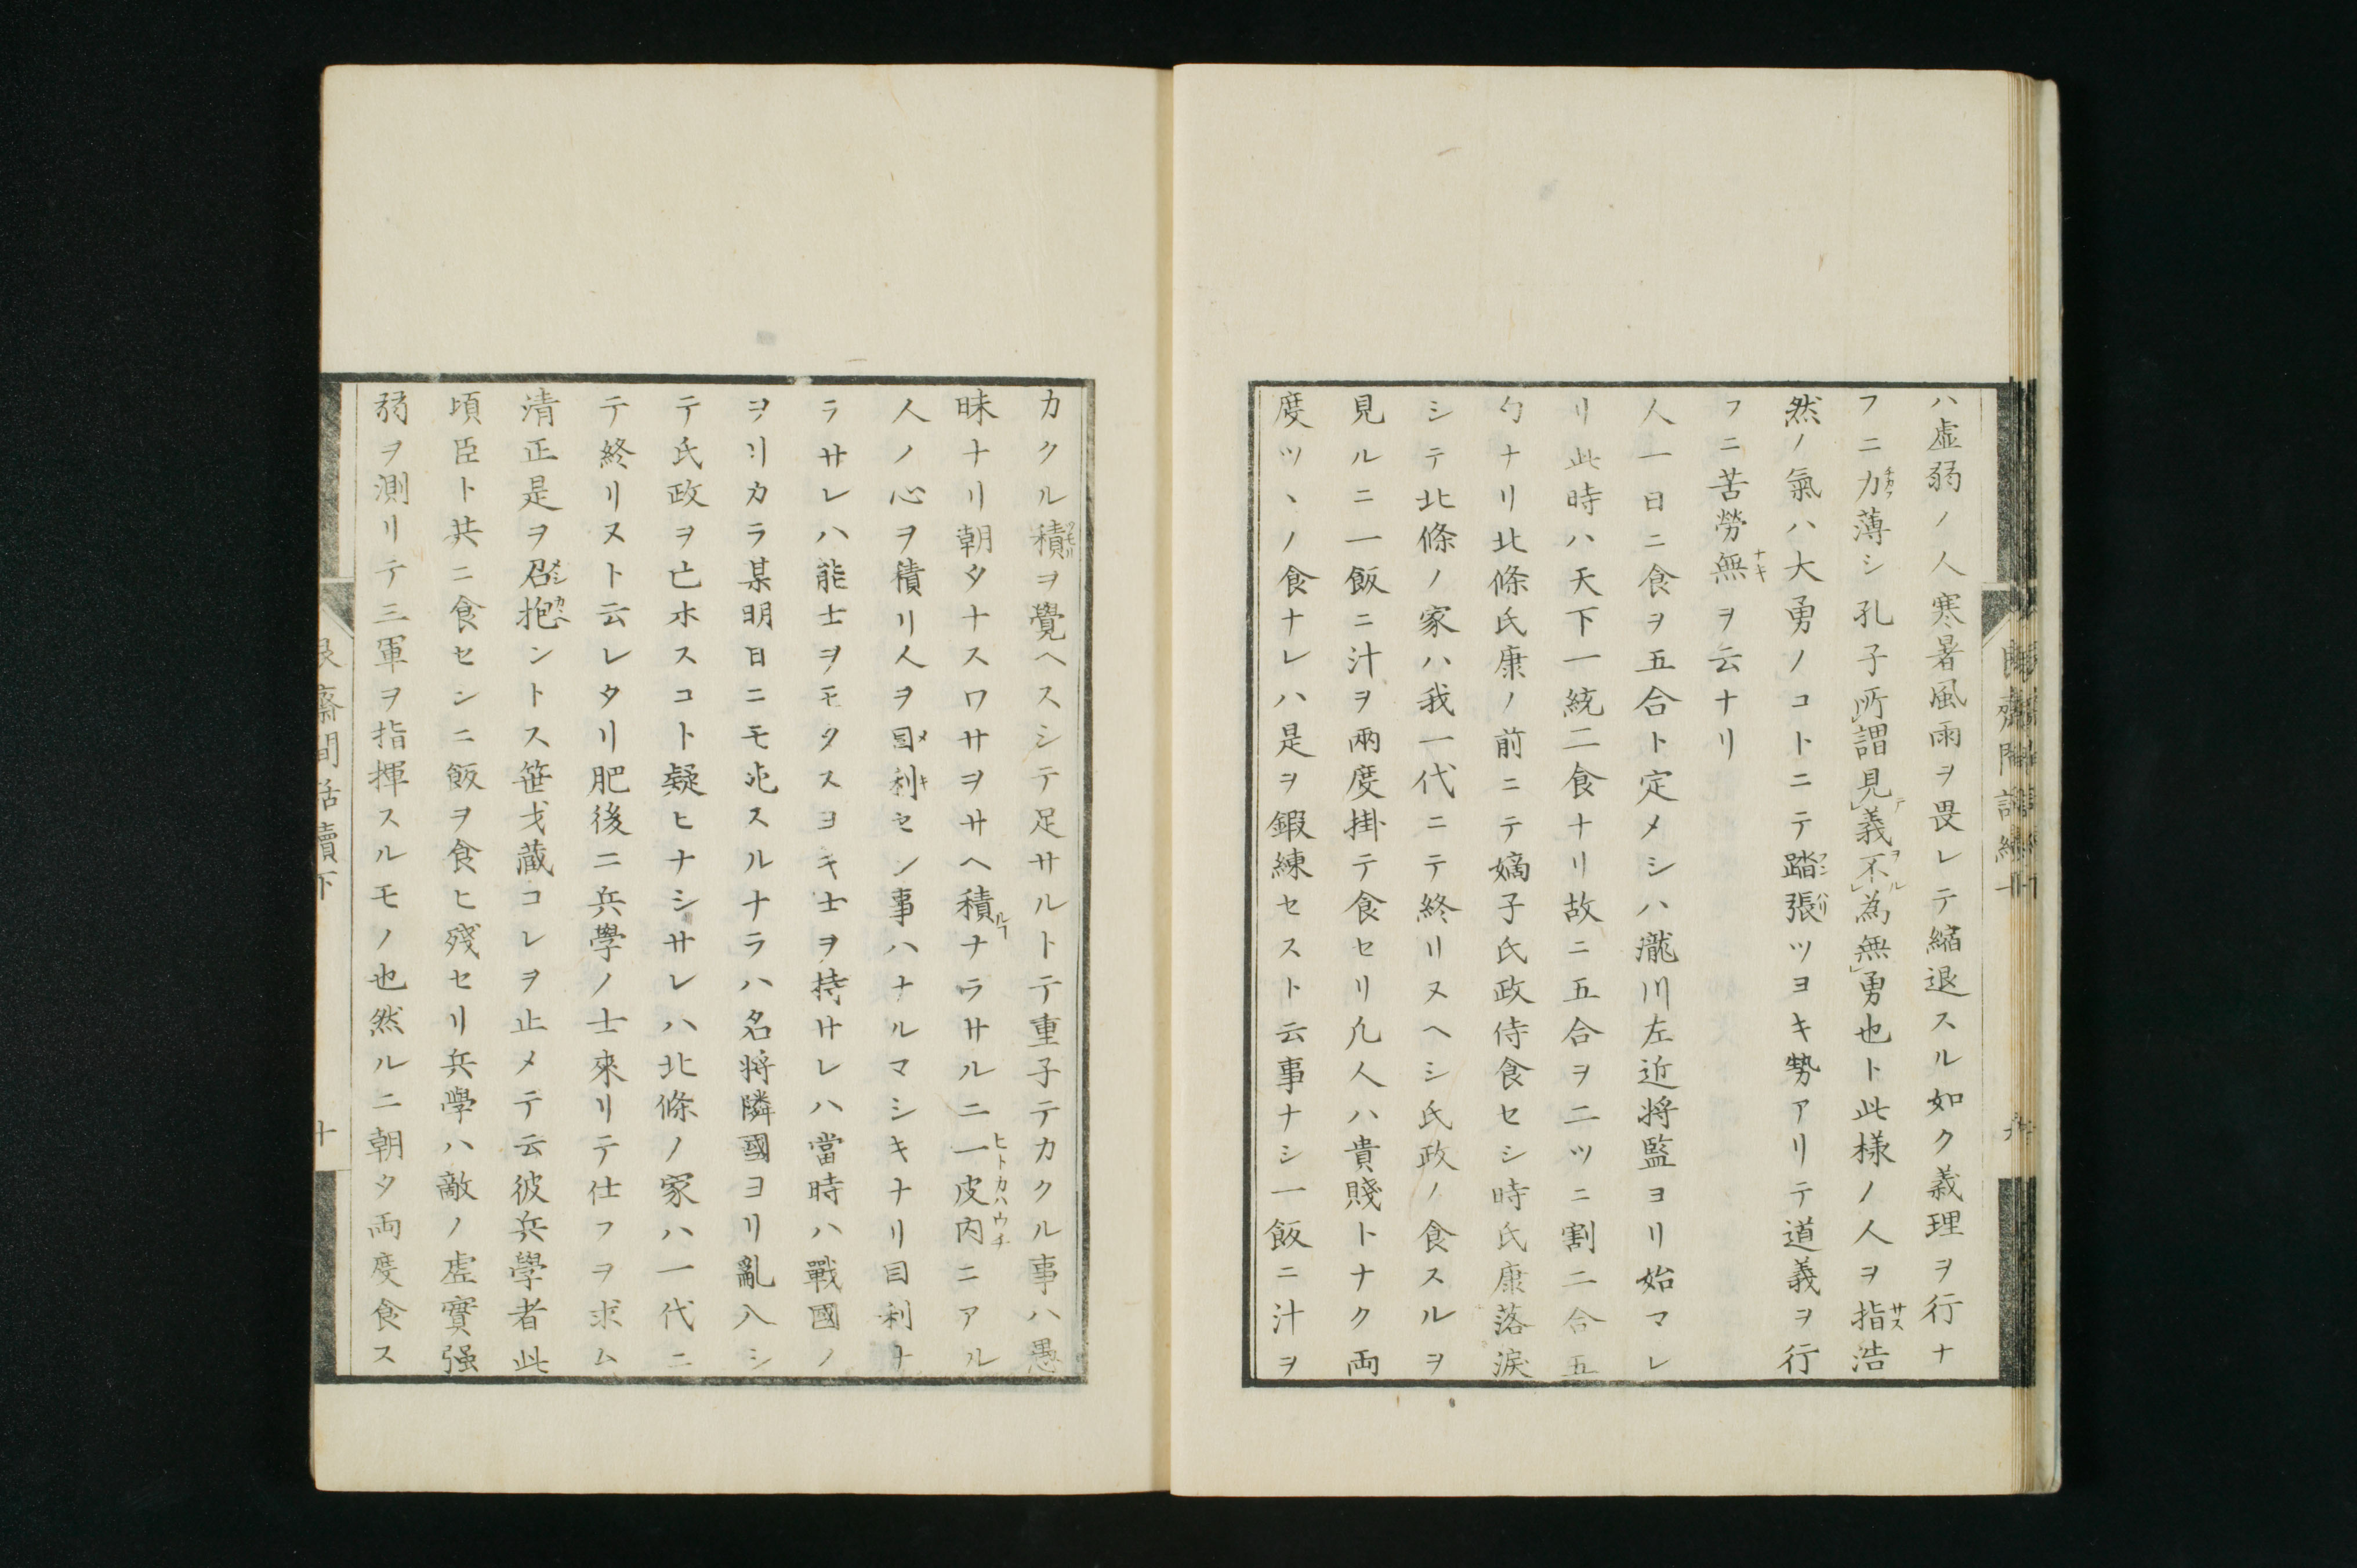 ハ虚弱ノ人寒暑風雨ヲ畏レテ縮退スル如ク義理ヲ行ナ
フニ力薄シ孔子所謂見義不為無勇也ト此様ノ人ヲ指浩
然ノ氣ハ大勇ノコトニテ踏張ツヨキ勢アリテ道義ヲ行
フニ苦勞無ヲ云ナリ
人一日ニ食ヲ五合ト定メシハ瀧川左近将監ヨリ始マレ
リ此時ハ天下一統二食ナリ故ニ五合ヲ二ツニ割二合五
勺ナリ北條氏康ノ前ニテ嫡子氏政侍食セシ時氏康落涙
シテ北條ノ家ハ我一代ニテ終リヌヘシ氏政ノ食スルヲ
見ルニ一飯ニ汁ヲ兩度掛テ食セリ凡人ハ貴賤トナク両
度ツヽノ食ナレハ是ヲ鍜練セスト云事ナシ一飯ニ汁ヲ
カクル積ヲ覺ヘスシテ足サルトテ重子テカクル事ハ愚
昧ナリ朝夕ナスワサヲサヘ積ナラサルニ一皮内ニアル
人ノ心ヲ積リ人ヲ目利セン事ハナルマシキナリ目利ナ
ラサレハ能士ヲモタスヨキ士ヲ持サレハ當時ハ戰國ノ
ヲリカラ某明日ニモ死スルナラハ名将隣國ヨリ亂入シ
テ氏政ヲ亡ホスコト疑ヒナシサレハ北條ノ家ハ一代ニ
テ終リヌト云レタリ肥後ニ兵學ノ士來リテ仕フヲ求ム
清正是ヲ召抱ントス笹戈蔵コレヲ止メテ云彼兵學者此
頃臣ト共ニ食センニ飯ヲ食ヒ殘セリ兵學ハ敵ノ虚實强
弱ヲ測リテ三軍ヲ指揮スルモノ也然ルニ朝夕両度食ス
艮齋間話續下
十